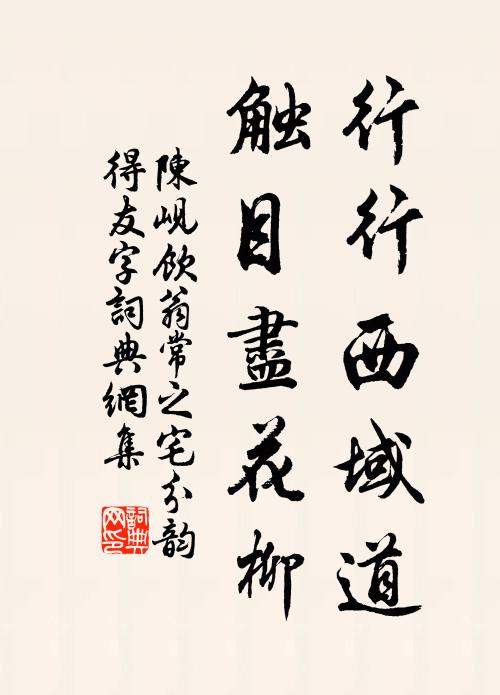 行行西域道
触目盡花柳
陳峴飲翁常之宅分韵
得友字詞典網集
詞典网印